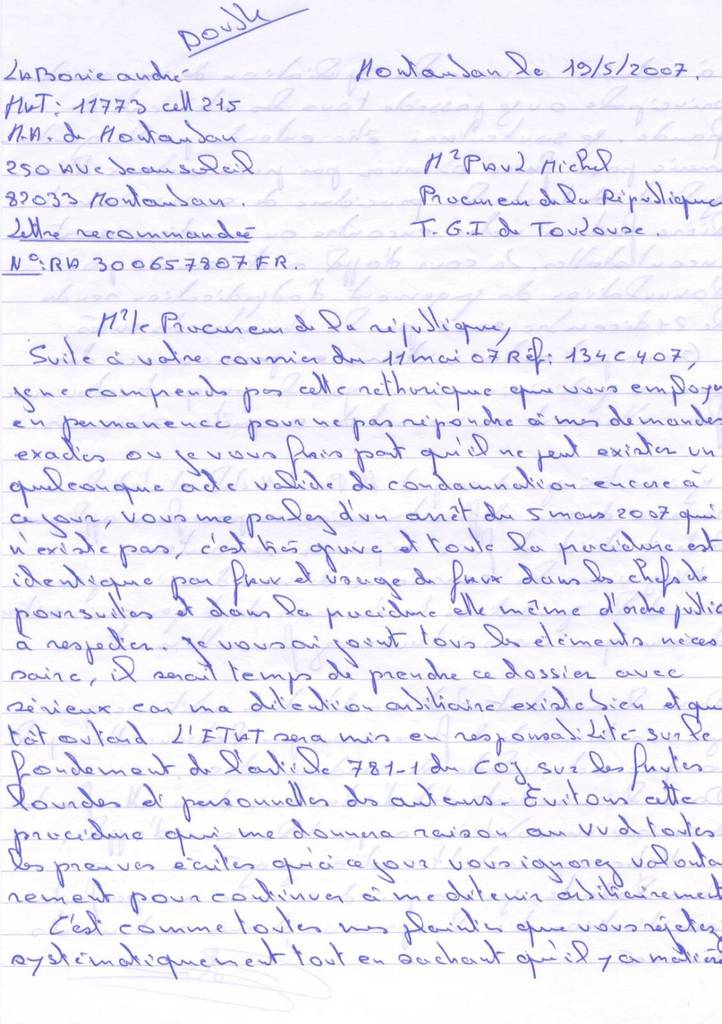 Double
LaBorie andré Montauban le 19/5/2007.
MAT: 11773 cell 215
M.A. de Montauban
250 AVe Beausoleil Mr PAUL Michel
82033 Montauban. Procureur de la République
Lettre recommandée T.G.I de Toulouse.
N°: RA 300657807 FR.
Mr le Procureur de la république,
Suite à votre courrier du 11 mai 07 Réf: 134 C 407,
je ne comprends pas cette rethorique que vous employe
en permanence pour ne pas répondre à mes demandes
exactes ou je vous fais part qu'il ne peut exister un
quelconque acte valide de condamnation encore à
ce jour, vous me parlez d'un arrêt du 5 mars 2007 qui
n'existe pas, c'est très grave et toute la procédure est
identique par faux et usage de faux dans les chefs de
poursuites et dans la procédure elle même d'ordre public
à respecter. Je vous ai joint tous les éléments néces
saire, il serait temps de prendre ce dossier avec
sérieux car ma détention arbitraire existe bien et que
tôt ou tard L'ETAT sera mis en responsabilité sur le
fondement de l'article 781-1 du COJ sur les fautes
lourdes et personnelles des auteurs. Evitons cette
procédure qui me donnera raison au vu de toutes
les preuves écrites qu'à ce jour vous ignorez volonta
rement pour continuer à me détenir arbitrairement
C'est comme toutes mes plaintes que vous rejetez
systématiquement tout en sachant qu'il y a matière